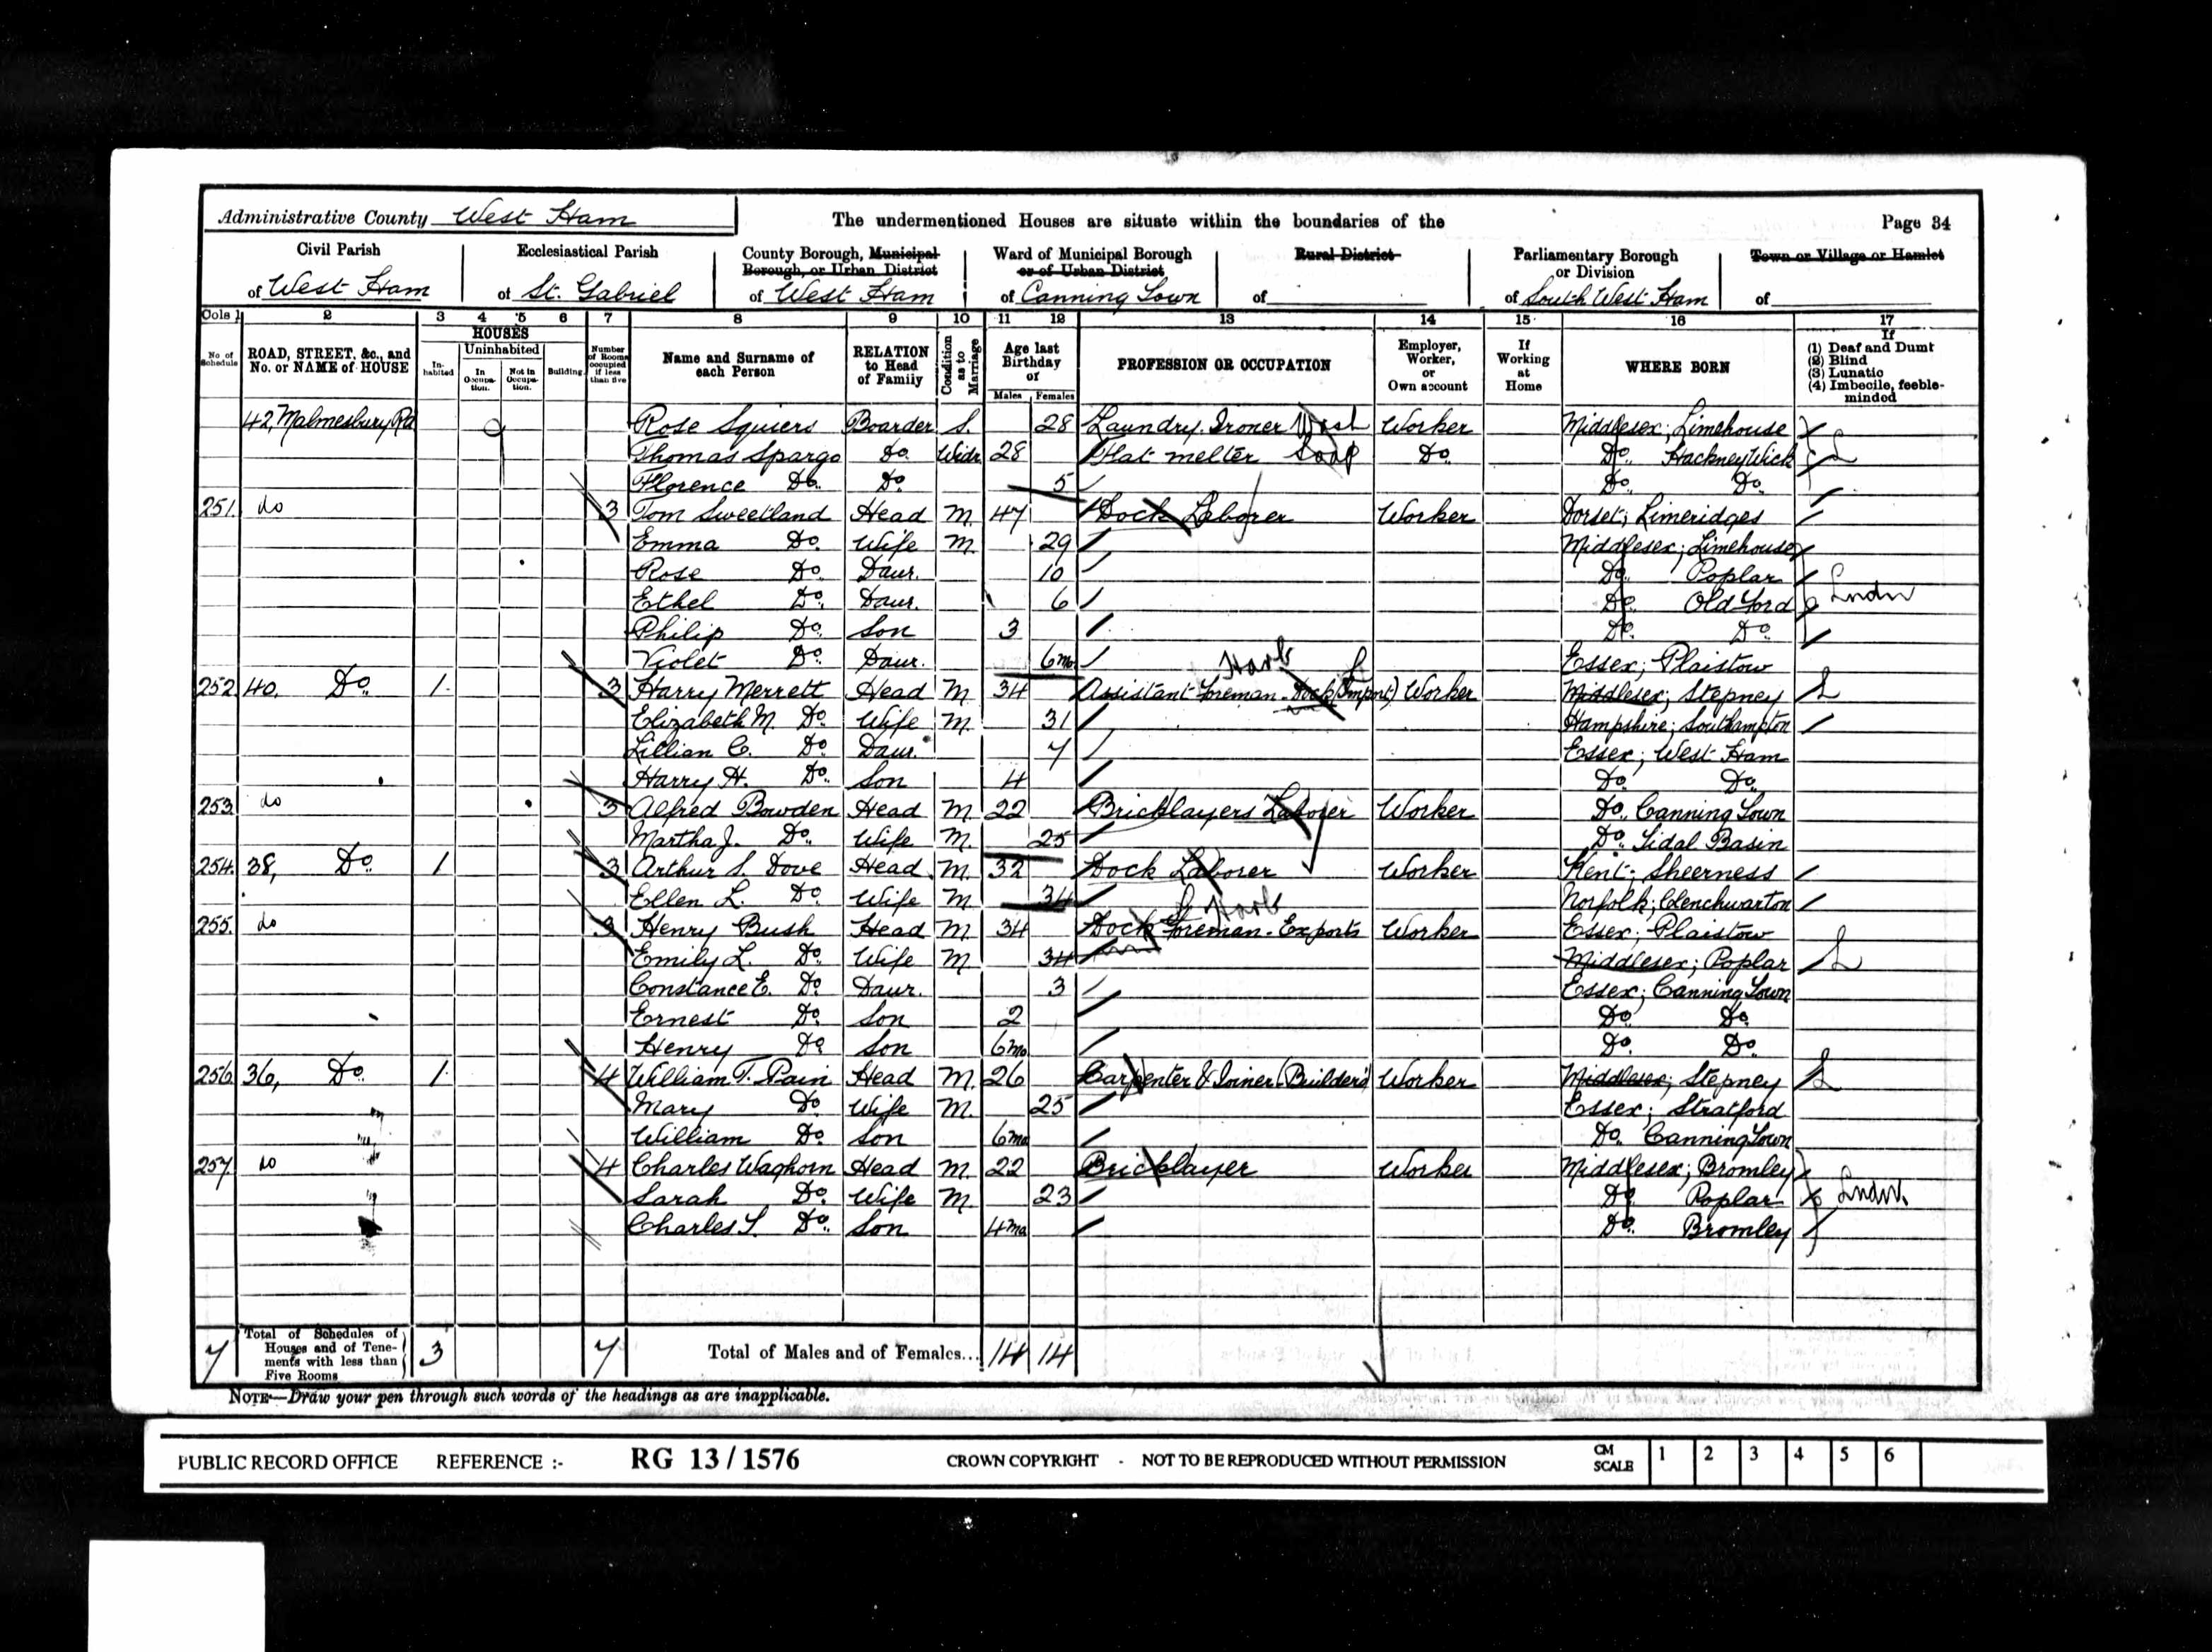 Administrative County West Ham The undermentioned Houses are situate within the boundaries of the Page 34
Civil Parish of West Ham
Ecclesiastical Parish of St. Gabriel
County Borough, Municipal Borough, or Urban District of West Ham
Ward of Municipal Borough or of Urban District of Canning Town
Rural District of
Parliamentary Borough or Division of South West Ham
Town or Village or Hamlet of
Cols 1 2 3 4 5 6 7 8 9 10 11 12 13 14 15 16 17
No of Schedule
ROAD, STREET, &c., and No. or NAME of HOUSE
HOUSES
Inhabited
Uninhabited
In Occupation.
Not in Occupation.
Building
Number of Rooms occupied if less than five
Name and Surname of each Person
RELATION to Head of Family
Condition as to Marriage
Age last Birthday of
Males Females
PROFESSION OR OCCUPATION
Employer, Worker, or Own account
If Working at Home
WHERE BORN
If
(1) Deaf and Dumb
(2) Blind
(3) Lunatic
(4) Imbecile, feeble-minded
42, Malmesbury Rd Rose Squiers Boarder S. 28 Laundry Ironer Wash Worker Middlesex; Limehouse
Thomas Spargo Do. Widr. 28 Fat melter Soap Do. Do. Hackney Wick L
Florence Do. Do. 5 Do. Do.
251. do 3 Tom Sweetland Head M. 47 Dock Laborer Worker Dorset; Limeridges
Emma Do. Wife M. 29 Middlesex; Limehouse
Rose Do. Daur. 10 Do. Poplar
Ethel Do. Daur. 6 Do. Old Ford Lndn
Philip Do. Son 3 Do. Do.
Violet Do. Daur. 6mo. Essex; Plaistow
Harb L
252 40, Do. 1. 3 Harry Merrett Head M. 34 Assistant Foreman-Dock (Import) Worker Middlesex; Stepney L
Elizabeth M. Do. Wife M. 31 Hampshire; Southampton
Lillian C. Do. Daur. 7 Essex; West Ham
Harry H. Do. Son 4 Do. Do.
253. do 3 Alfred Bowden Head M. 22 Bricklayers Laborer Worker Do. Canning Town
Martha J. Do. Wife M. 25 Do. Tidal Basin
254. 38, Do. 1 3 Arthur S. Dove Head M. 32 Dock Laborer Worker Kent; Sheerness
Ellen L. Do. Wife M. 34 Norfolk; Clenchwarton
L Harb
255. do 3 Henry Bush Head M. 34 Dock Foreman-Exports Worker Essex; Plaistow
Emily L. Do. Wife M. 34 Middlesex; Poplar L
Constance E. Do. Daur. 3 Essex; Canning Town
Ernest Do. Son 2 Do. Do.
Henry Do. Son 6mo Do. Do.
256. 36, Do. 1. 4 William T. Pain Head M. 26 Carpenter & Joiner (Builders) Worker Middlesex; Stepney L
Mary Do. Wife M. 25 Essex; Stratford
William Do. Son 6mo Do. Canning Town
257. do 4 Charles Waghorn Head M. 22 Bricklayer Worker Middlesex; Bromley
Sarah Do. Wife M. 23 Do. Poplar Lndn.
Charles S. Do. Son 4mo Do. Bromley
7 Total of Schedules of Houses and of Tenements with less than Five Rooms 3 7 Total of Males and of Females... 14 14
NOTE—Draw your pen through such words of the headings as are inapplicable.
PUBLIC RECORD OFFICE REFERENCE :- RG 13/1576 CROWN COPYRIGHT - NOT TO BE REPRODUCED WITHOUT PERMISSION CM SCALE 1 2 3 4 5 6